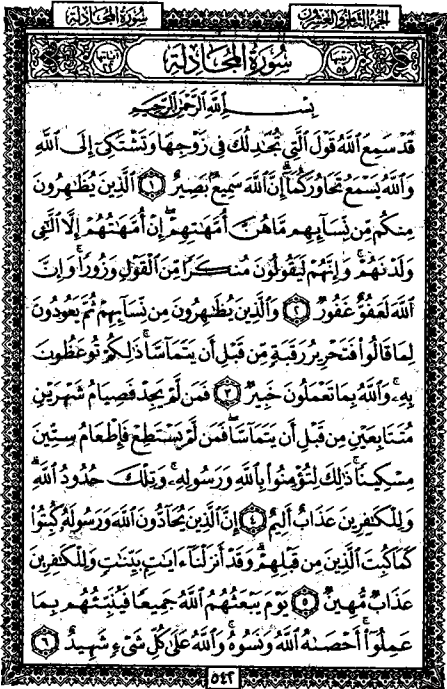 الجزء الثامن والعشرون
سورة المجادلة
ترتيبها ٥٨
سُورَةُ المُجَادلَةِ
آياتها ٢٢
بِسْمِ اللَّهِ الرَّحْمَٰنِ الرَّحِيمِ
قَدْ سَمِعَ اللَّهُ قَوْلَ الَّتِي تُجَٰدِلُكَ فِي زَوْجِهَا وَتَشْتَكِيٓ إِلَى اللَّهِ
وَاللَّهُ يَسْمَعُ تَحَاوُرَكُمَآ ۚ إِنَّ اللَّهَ سَمِيعٌۢ بَصِيرٌ ١ الَّذِينَ يُظَٰهِرُونَ
مِنكُم مِّن نِّسَآئِهِم مَّا هُنَّ أُمَّهَٰتِهِمْ ۖ إِنْ أُمَّهَٰتُهُمْ إِلَّا الَّٰٓـِٔي
وَلَدْنَهُمْ ۚ وَإِنَّهُمْ لَيَقُولُونَ مُنكَرًا مِّنَ الْقَوْلِ وَزُورًا ۚ وَإِنَّ
اللَّهَ لَعَفُوٌّ غَفُورٌ ٢ وَالَّذِينَ يُظَٰهِرُونَ مِن نِّسَآئِهِمْ ثُمَّ يَعُودُونَ
لِمَا قَالُوا۟ فَتَحْرِيرُ رَقَبَةٍ مِّن قَبْلِ أَن يَتَمَآسَّا ۚ ذَٰلِكُمْ تُوعَظُونَ
بِهِۦ ۚ وَاللَّهُ بِمَا تَعْمَلُونَ خَبِيرٌ ٣ فَمَن لَّمْ يَجِدْ فَصِيَامُ شَهْرَيْنِ
مُتَتَابِعَيْنِ مِن قَبْلِ أَن يَتَمَآسَّا ۖ فَمَن لَّمْ يَسْتَطِعْ فَإِطْعَامُ سِتِّينَ
مِسْكِينًا ۚ ذَٰلِكَ لِتُؤْمِنُوا۟ بِاللَّهِ وَرَسُولِهِۦ ۚ وَتِلْكَ حُدُودُ اللَّهِ ۗ
وَلِلْكَٰفِرِينَ عَذَابٌ أَلِيمٌ ٤ إِنَّ الَّذِينَ يُحَآدُّونَ اللَّهَ وَرَسُولَهُۥ كُبِتُوا۟
كَمَا كُبِتَ الَّذِينَ مِن قَبْلِهِمْ ۚ وَقَدْ أَنزَلْنَآ ءَايَٰتٍۭ بَيِّنَٰتٍ ۚ وَلِلْكَٰفِرِينَ
عَذَابٌ مُّهِينٌ ٥ يَوْمَ يَبْعَثُهُمُ اللَّهُ جَمِيعًا فَيُنَبِّئُهُم بِمَا
عَمِلُوٓا۟ ۚ أَحْصَىٰهُ اللَّهُ وَنَسُوهُ ۚ وَاللَّهُ عَلَىٰ كُلِّ شَيْءٍ شَهِيدٌ ٦
٥٤٢